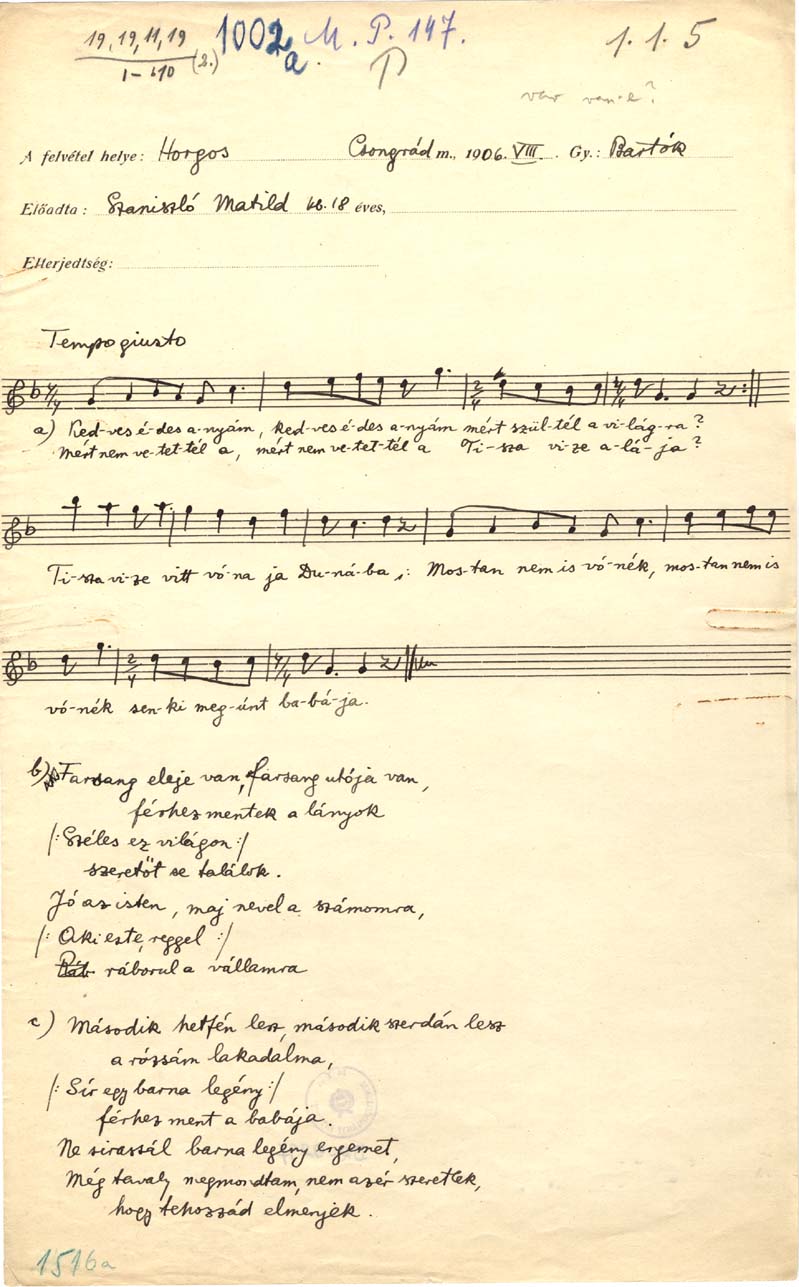 19, 19, 11, 19
1–b10 (2.)
1002a. M. P. 147.
P
1. 1. 5
van-e?
A felvétel helye: Horgos Csongrád m., 1906. VIII. Gy.: Bartók
Előadta: Szaniszló Matild kb. 18 éves,
Elterjedtség:
Tempo giusto
a) Ked-ves é-des a-nyám, ked-ves é-des a-nyám mért szül-tél a vi-lág-ra?
Mért nem ve-tet-tél a, mért nem ve-tet-tél a Ti-sza vi-ze a-lá-ja?
Ti-sza vi-ze vitt vó-na ja Du-ná-ba, Mos-tan nem is vó-nék, mos-tan nem is
vó-nék sen-ki meg-únt ba-bá-ja.
b) Farsang eleje van, farsang utója van,
férhez mentek a lányok
/: Széles ez világon :/
szeretőt se találok.
Jó az isten, maj nevel a számomra,
/: Aki este, reggel :/
ráborul a vállamra
c) Második hetfén lesz, második szerdán lesz
a rózsám lakadalma,
/: Sír egy barna legény :/
férhez ment a babája.
Ne sirassál barna legény engemet,
Még tavaly megmondtam, nem azér szeretlek,
hogy tehozzád elmenjek.
1516a